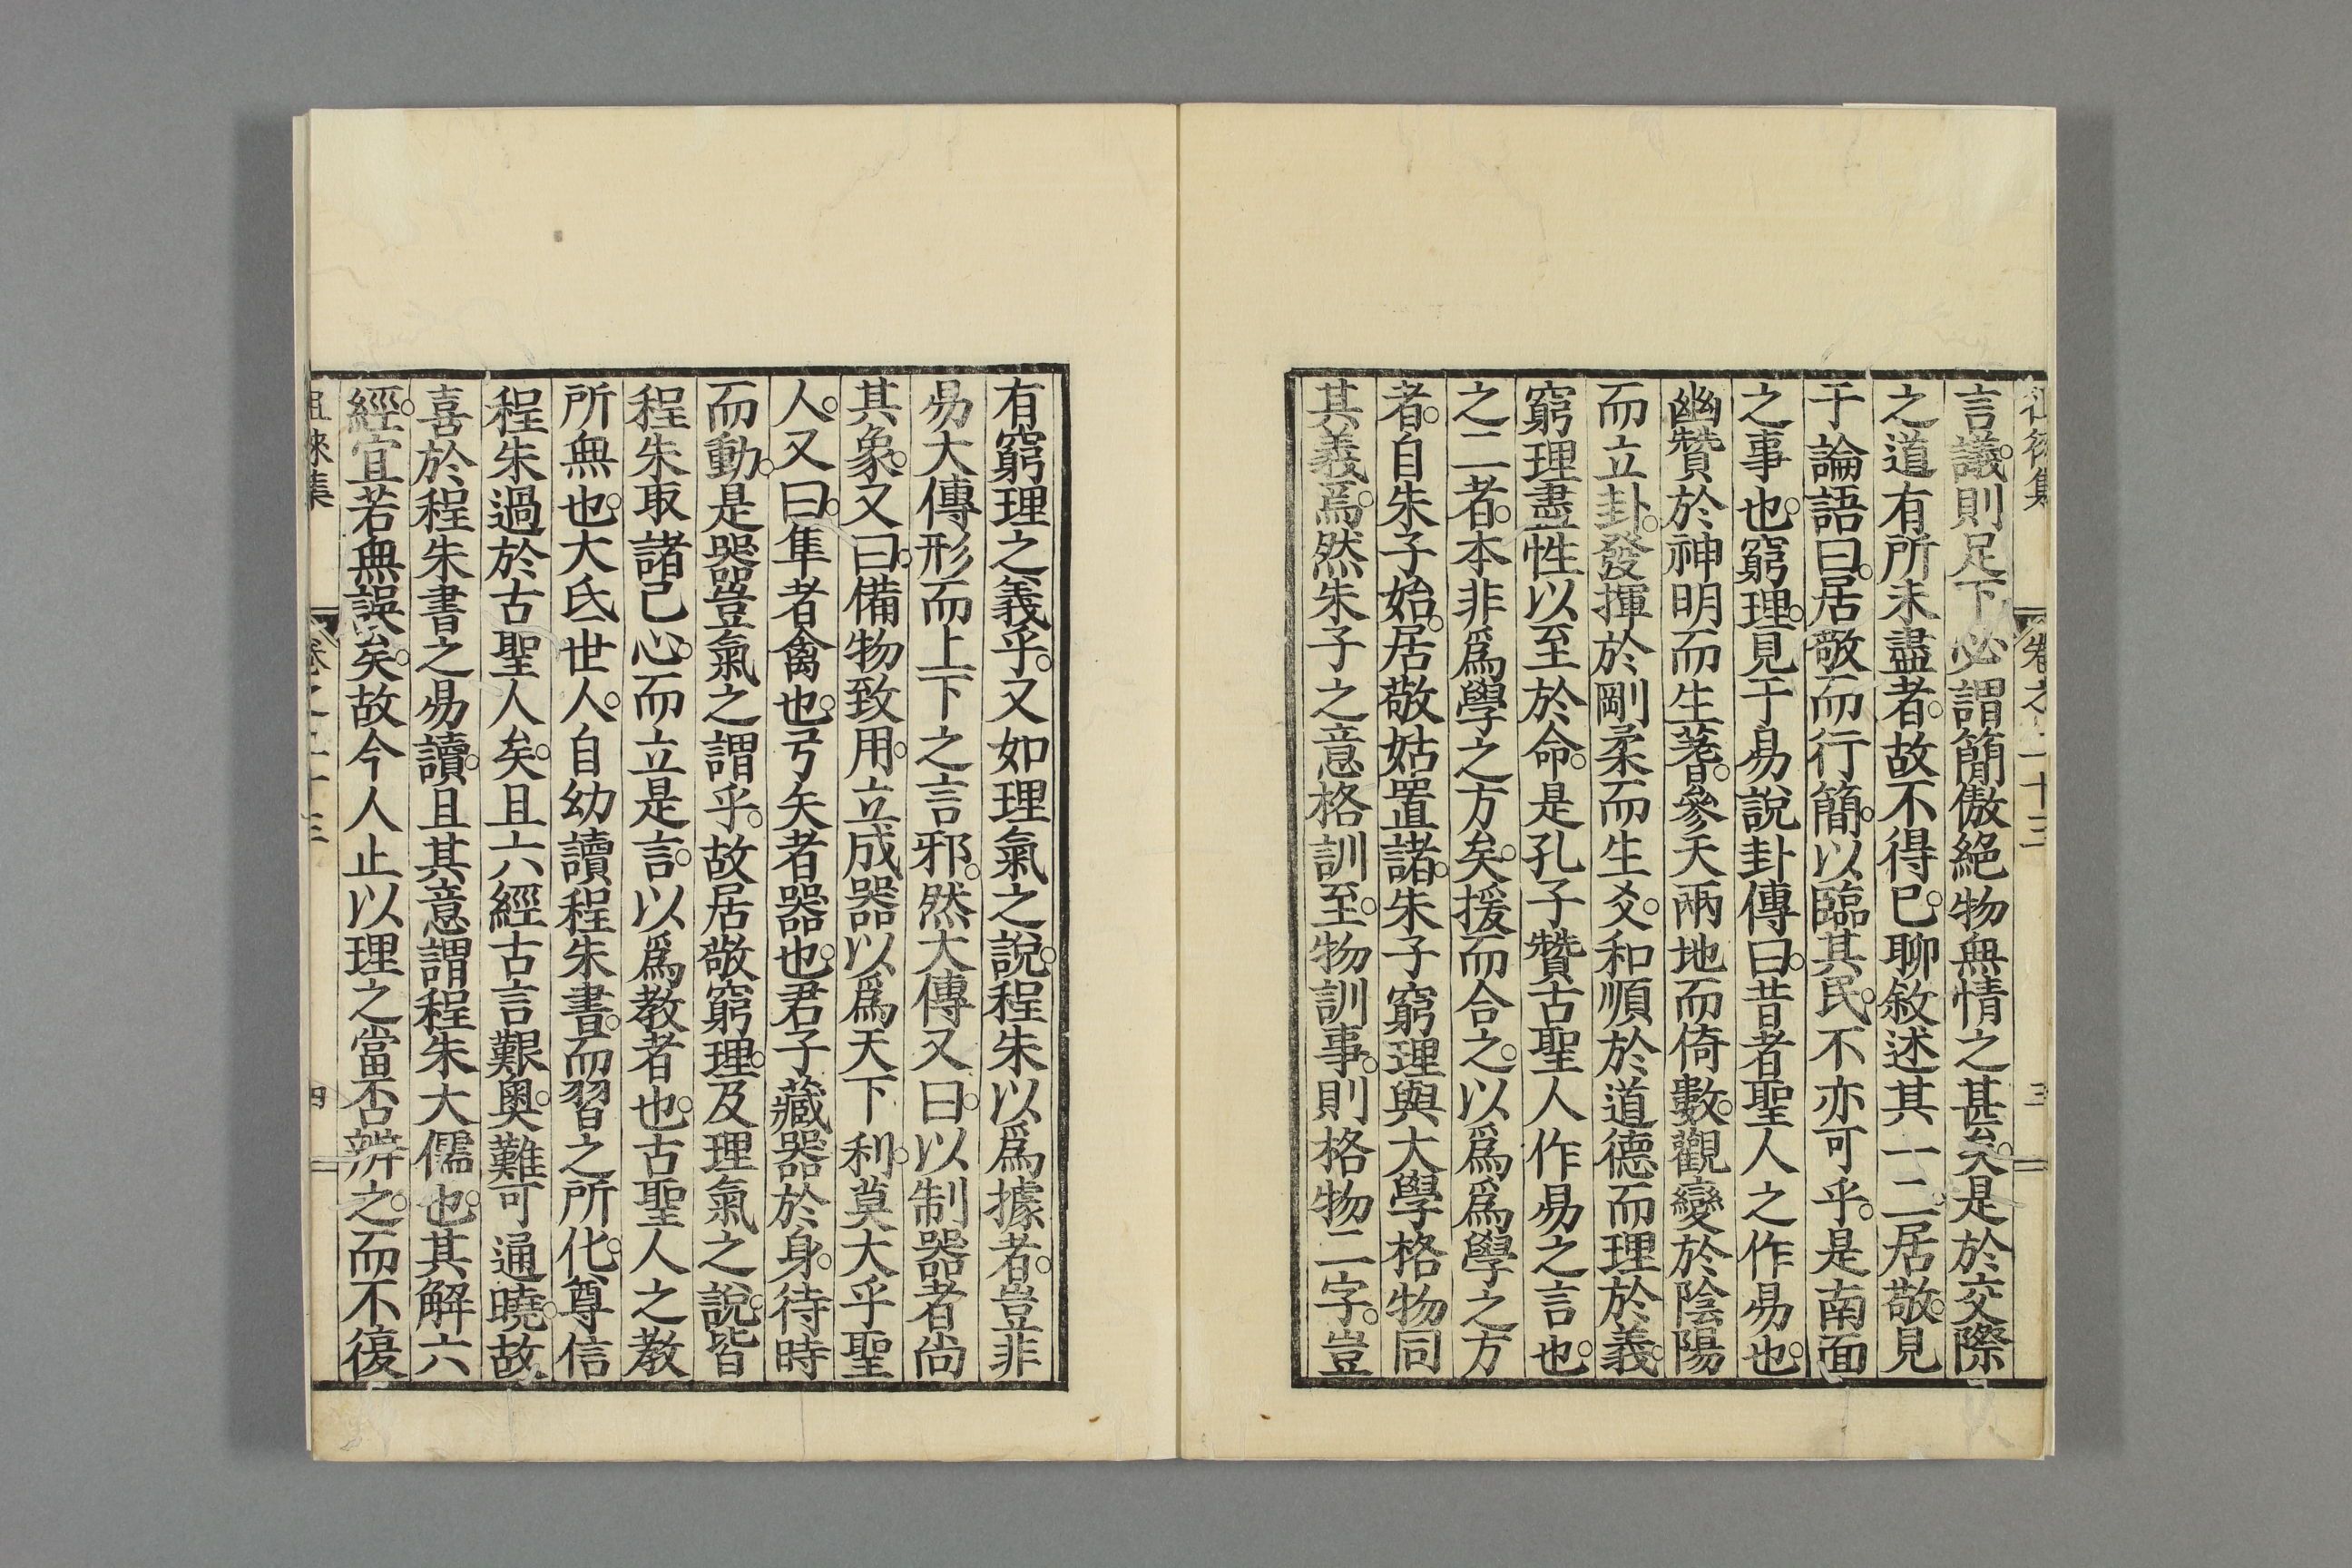 言議。則足下必謂簡傲絕物無情之甚矣。是於交際
之道有所未盡者。故不得已。聊敘述其一二。居敬。見
于論語曰。居敬而行簡。以臨其民。不亦可乎。是南面
之事也。窮理。見于易說卦傳曰。昔者聖人之作易也。
幽贊於神明而生蓍。參天兩地而倚數。觀變於陰陽
而立卦。發揮於剛柔而生爻。和順於道德而理於義。
窮理盡性以至於命。是孔子贊古聖人作易之言也。
之二者。本非爲學之方矣。援而合之。以爲爲學之方
者。自朱子始。居敬姑置諸。朱子窮理與大學格物同
其義焉。然朱子之意格訓至。物訓事。則格物二字。豈
有窮理之義乎。又如理氣之說。程朱以爲據者。豈非
易大傳形而上下之言邪。然大傳又曰。以制器者尚
其象。又曰。備物致用。立成器以爲天下利。莫大乎聖
人。又曰。隼者禽也。弓矢者器也。君子藏器於身。待時
而動。是器豈氣之謂乎。故居敬窮理。及理氣之說。皆
程朱取諸己心。而立是言。以爲教者也。古聖人之教
所無也。大氐世人。自幼讀程朱書。而習之所化。尊信
程朱過於古聖人矣。且六經古言艱奧。難可通曉。故
喜於程朱書之易讀。且其意謂程朱大儒也。其解六
經。宜若無誤矣。故今人止以理之當否辨之。而不復
徂徠集 卷之二十三 四